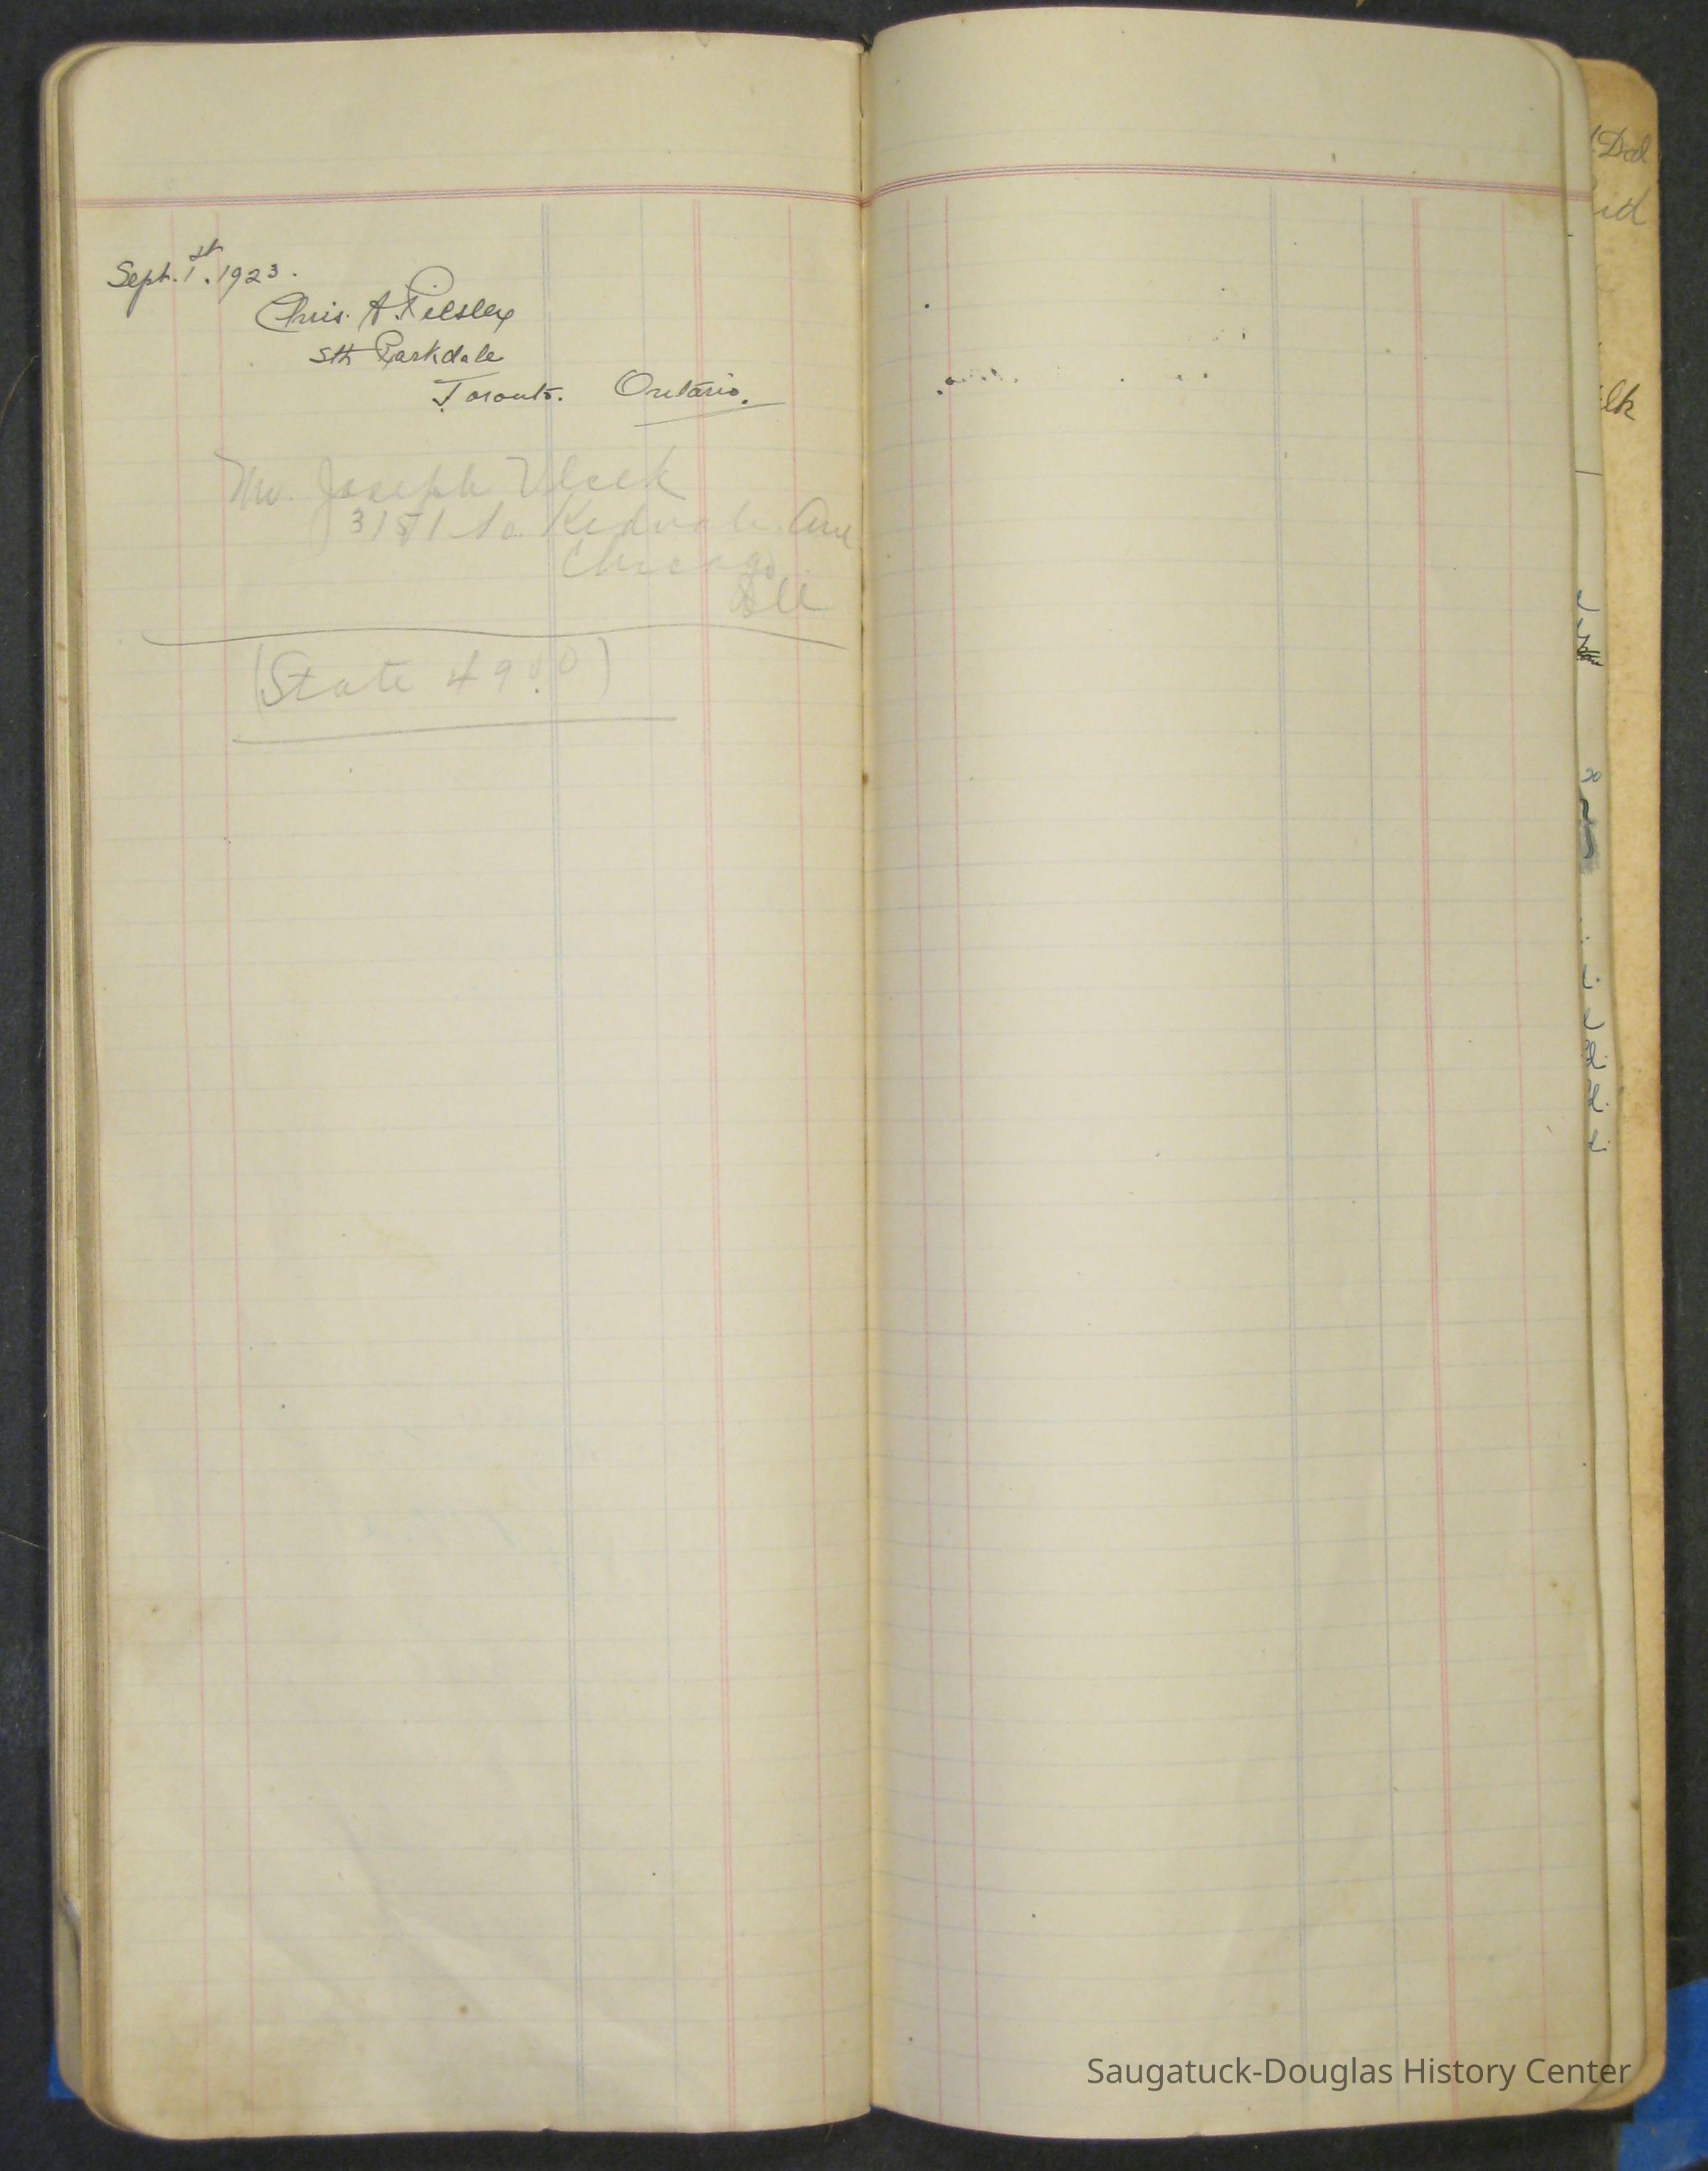 Sept. 1st. 1923.
Chris. A. Pilsley
Sth Parkdale
Toronto. Ontario.
Mr. Joseph Vlcek
3151 So. Kedvale Ave
Chicago
Ill
(State 4900)
Saugatuck-Douglas History Center